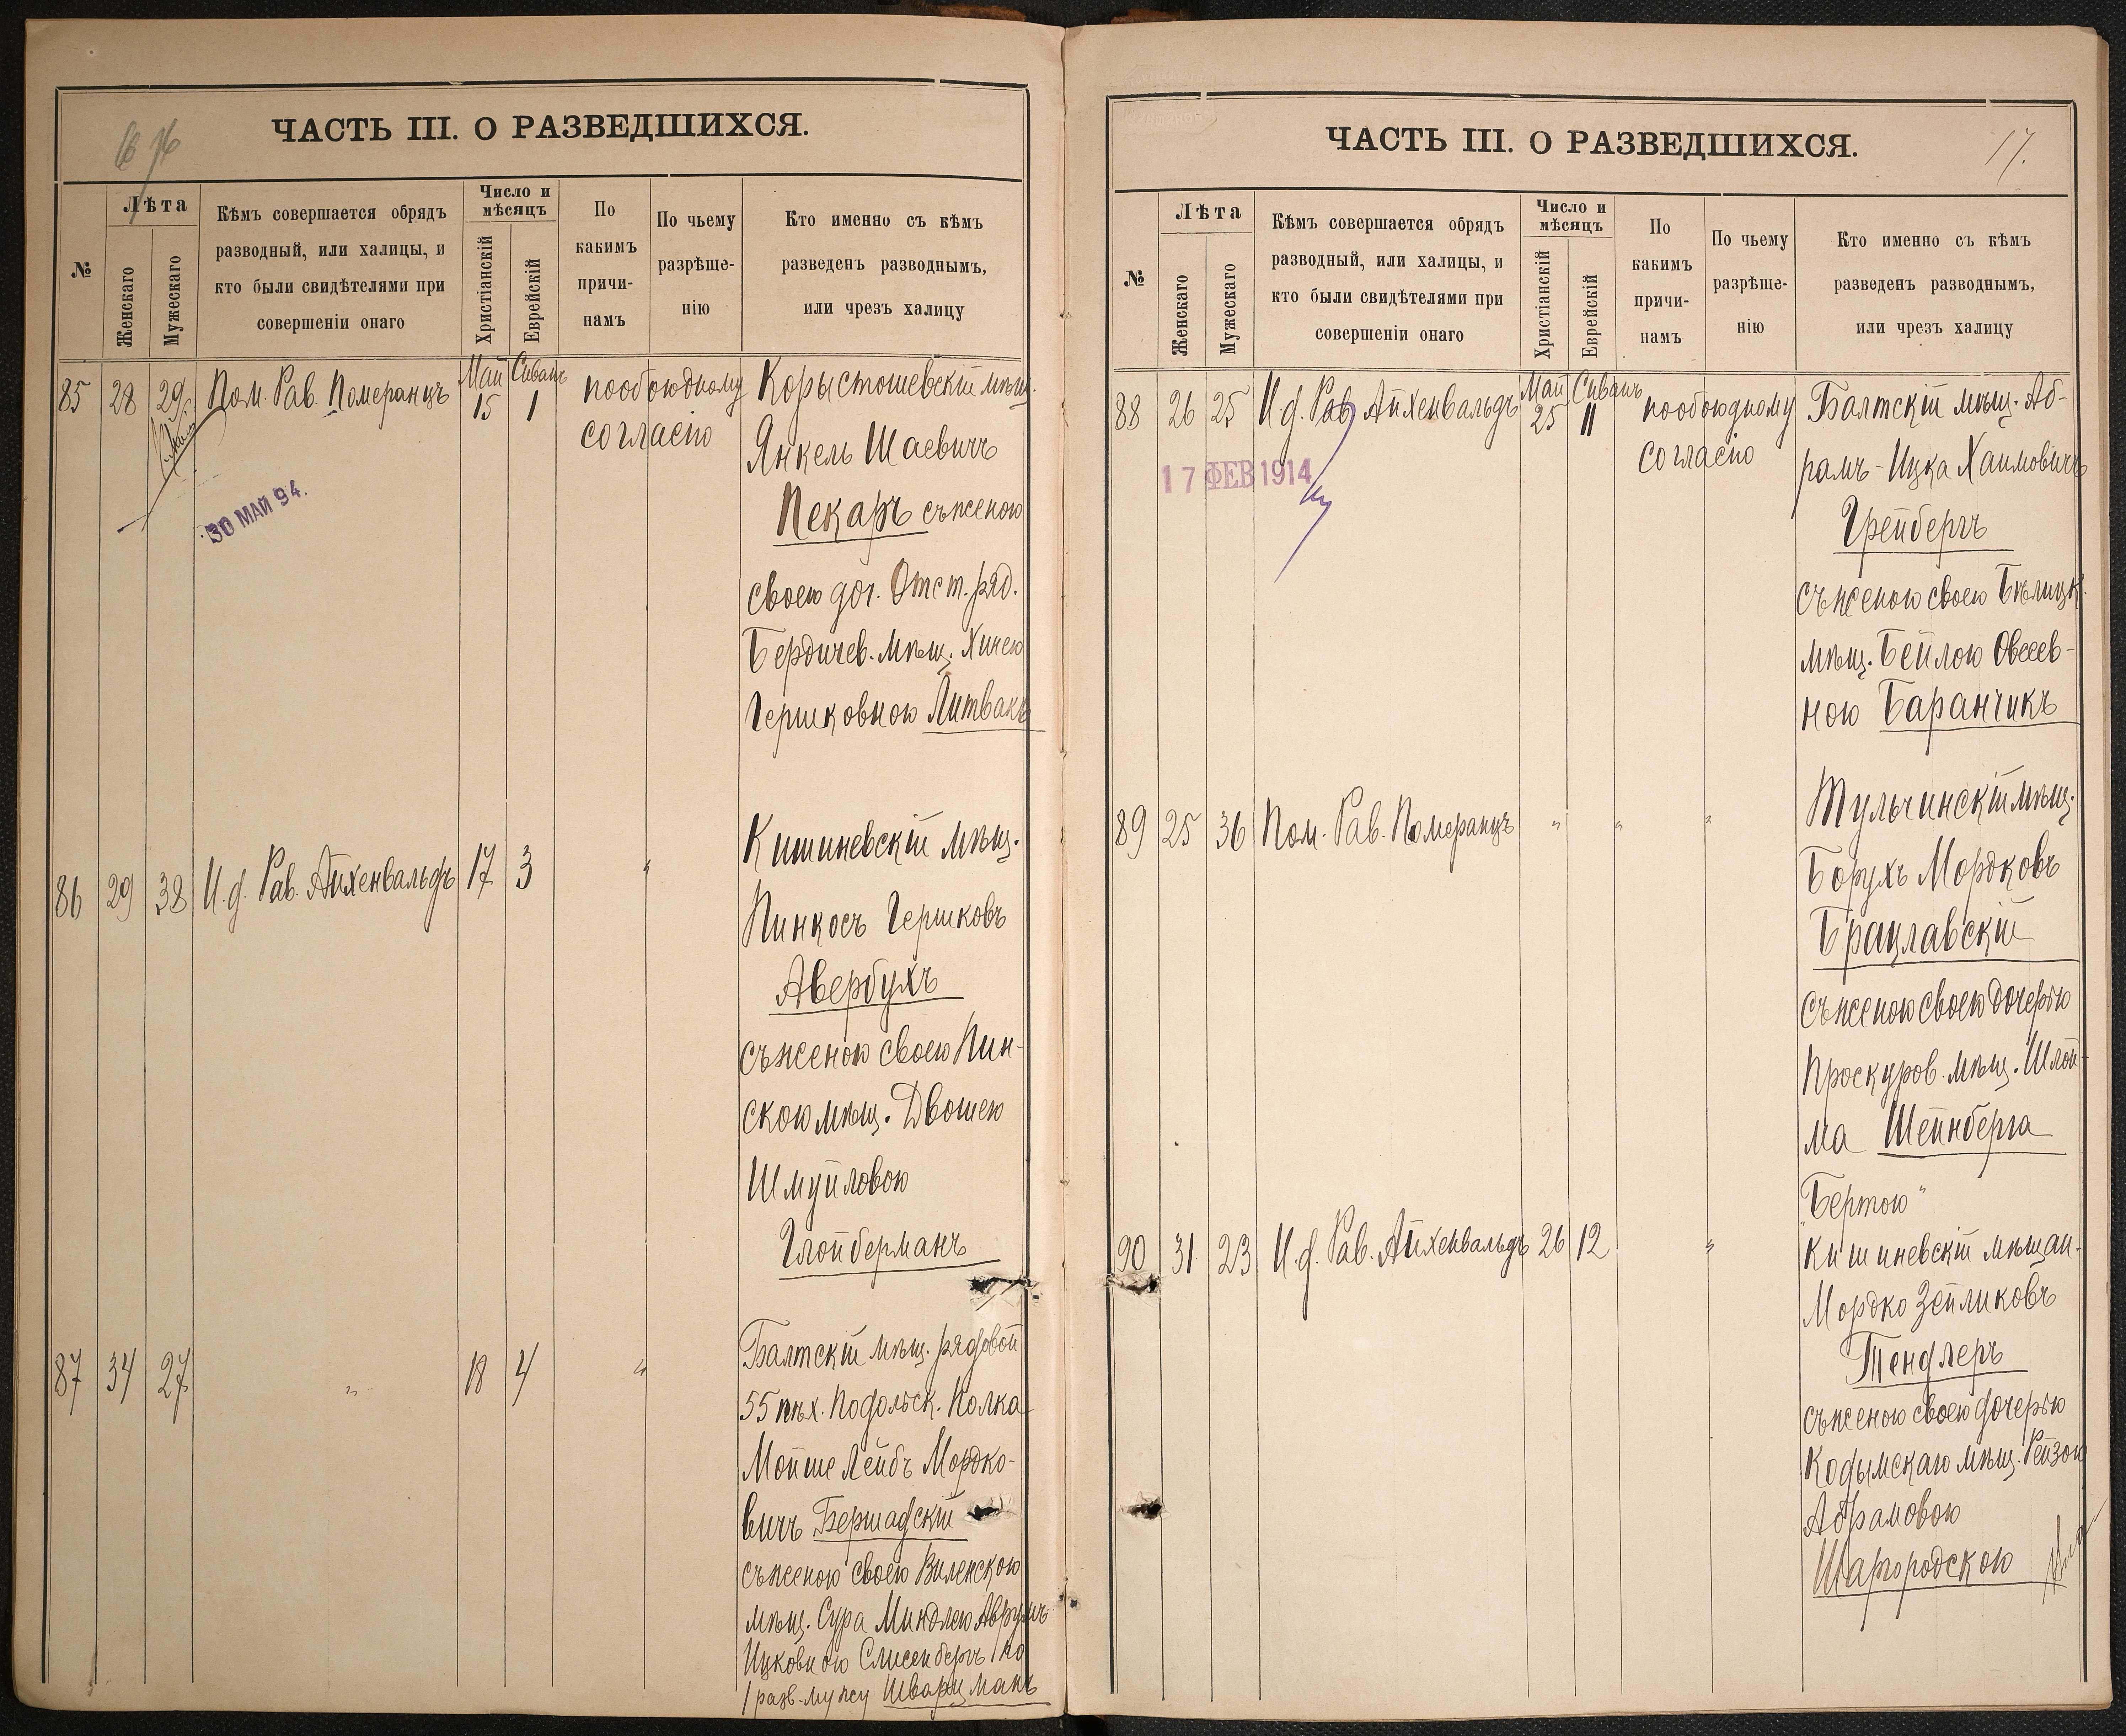 ЧАСТЬ III. О РАЗВЕДШИХСЯ.
№
Лѣта
Женскаго
Мужескаго
Кѣмъ совершается обрядъ
разводный, или халицы, и
кто были свидѣтелями при
совершеніи онаго
Число и
мѣсяцъ
Христіанскій
Еврейскій
По
какимъ
причи-
намъ
По чьему
разрѣше-
нію
Кто именно съ кѣмъ
разведенъ разводнымъ,
или чрезъ халицу
85 28 29 Пом. Рав. Померанцъ Май 15 Сиванъ 1 по обоюдному
согласію
Корыстошевскій мѣщ.
Янкель Шаевичъ
Пекаръ съ женою
своею доч. Отст. ряд.
Бердичев. мѣщ. Хинею
Гершковною Литвакъ
30 МАЙ 94.
86 29 38 И. д. Рав. Айхенвальдъ 17 3 "
Кишиневскій мѣщ.
Пинкосъ Гершковъ
Авербухъ
съ женою своею Пин-
скою мѣщ. Двошею
Шмуйловою
Глойберманъ
87 34 27 " 18 4 "
Балтскій мѣщ. рядовой
55 пѣх. Подольск. Полка
Мойше Лейбъ Мордко-
вичъ Бершадскій
съ женою своею Виленскою
мѣщ. Сура Миндлею Аврумъ
Ицковною
/разв. мужу Шварцманъ
ЧАСТЬ III. О РАЗВЕДШИХСЯ.
17.
№
Лѣта
Женскаго
Мужескаго
Кѣмъ совершается обрядъ
разводный, или халицы, и
кто были свидѣтелями при
совершеніи онаго
Число и
мѣсяцъ
Христіанскій
Еврейскій
По
какимъ
причи-
намъ
По чьему
разрѣше-
нію
Кто именно съ кѣмъ
разведенъ разводнымъ,
или чрезъ халицу
88 26 25 И. д. Рав. Айхенвальдъ Май 25 Сиванъ 11 по обоюдному
согласію
Балтскій мѣщ. Аб-
рамъ-Ицка Хаимовичъ
Грейбергъ
съ женою своею Бѣлицк.
мѣщ. Бейлою Овсеев-
ною Баранчикъ
17 ФЕВ 1914
89 25 36 Пом. Рав. Померанцъ " " "
Тульчинскій мѣщ.
Борухъ Мордковъ
Брацлавскій
съ женою своею дочерью
Проскуров. мѣщ. Шлой-
ма Шейнберга
"Бертою"
90 31 23 И. д. Рав. Айхенвальдъ 26 12 "
Кишиневскій мѣщан.
Мордко Зейликовъ
Тендлеръ
съ женою своею дочерью
Кодымскаго мѣщ. Рейзою
Абрамовою
Шаргородскою